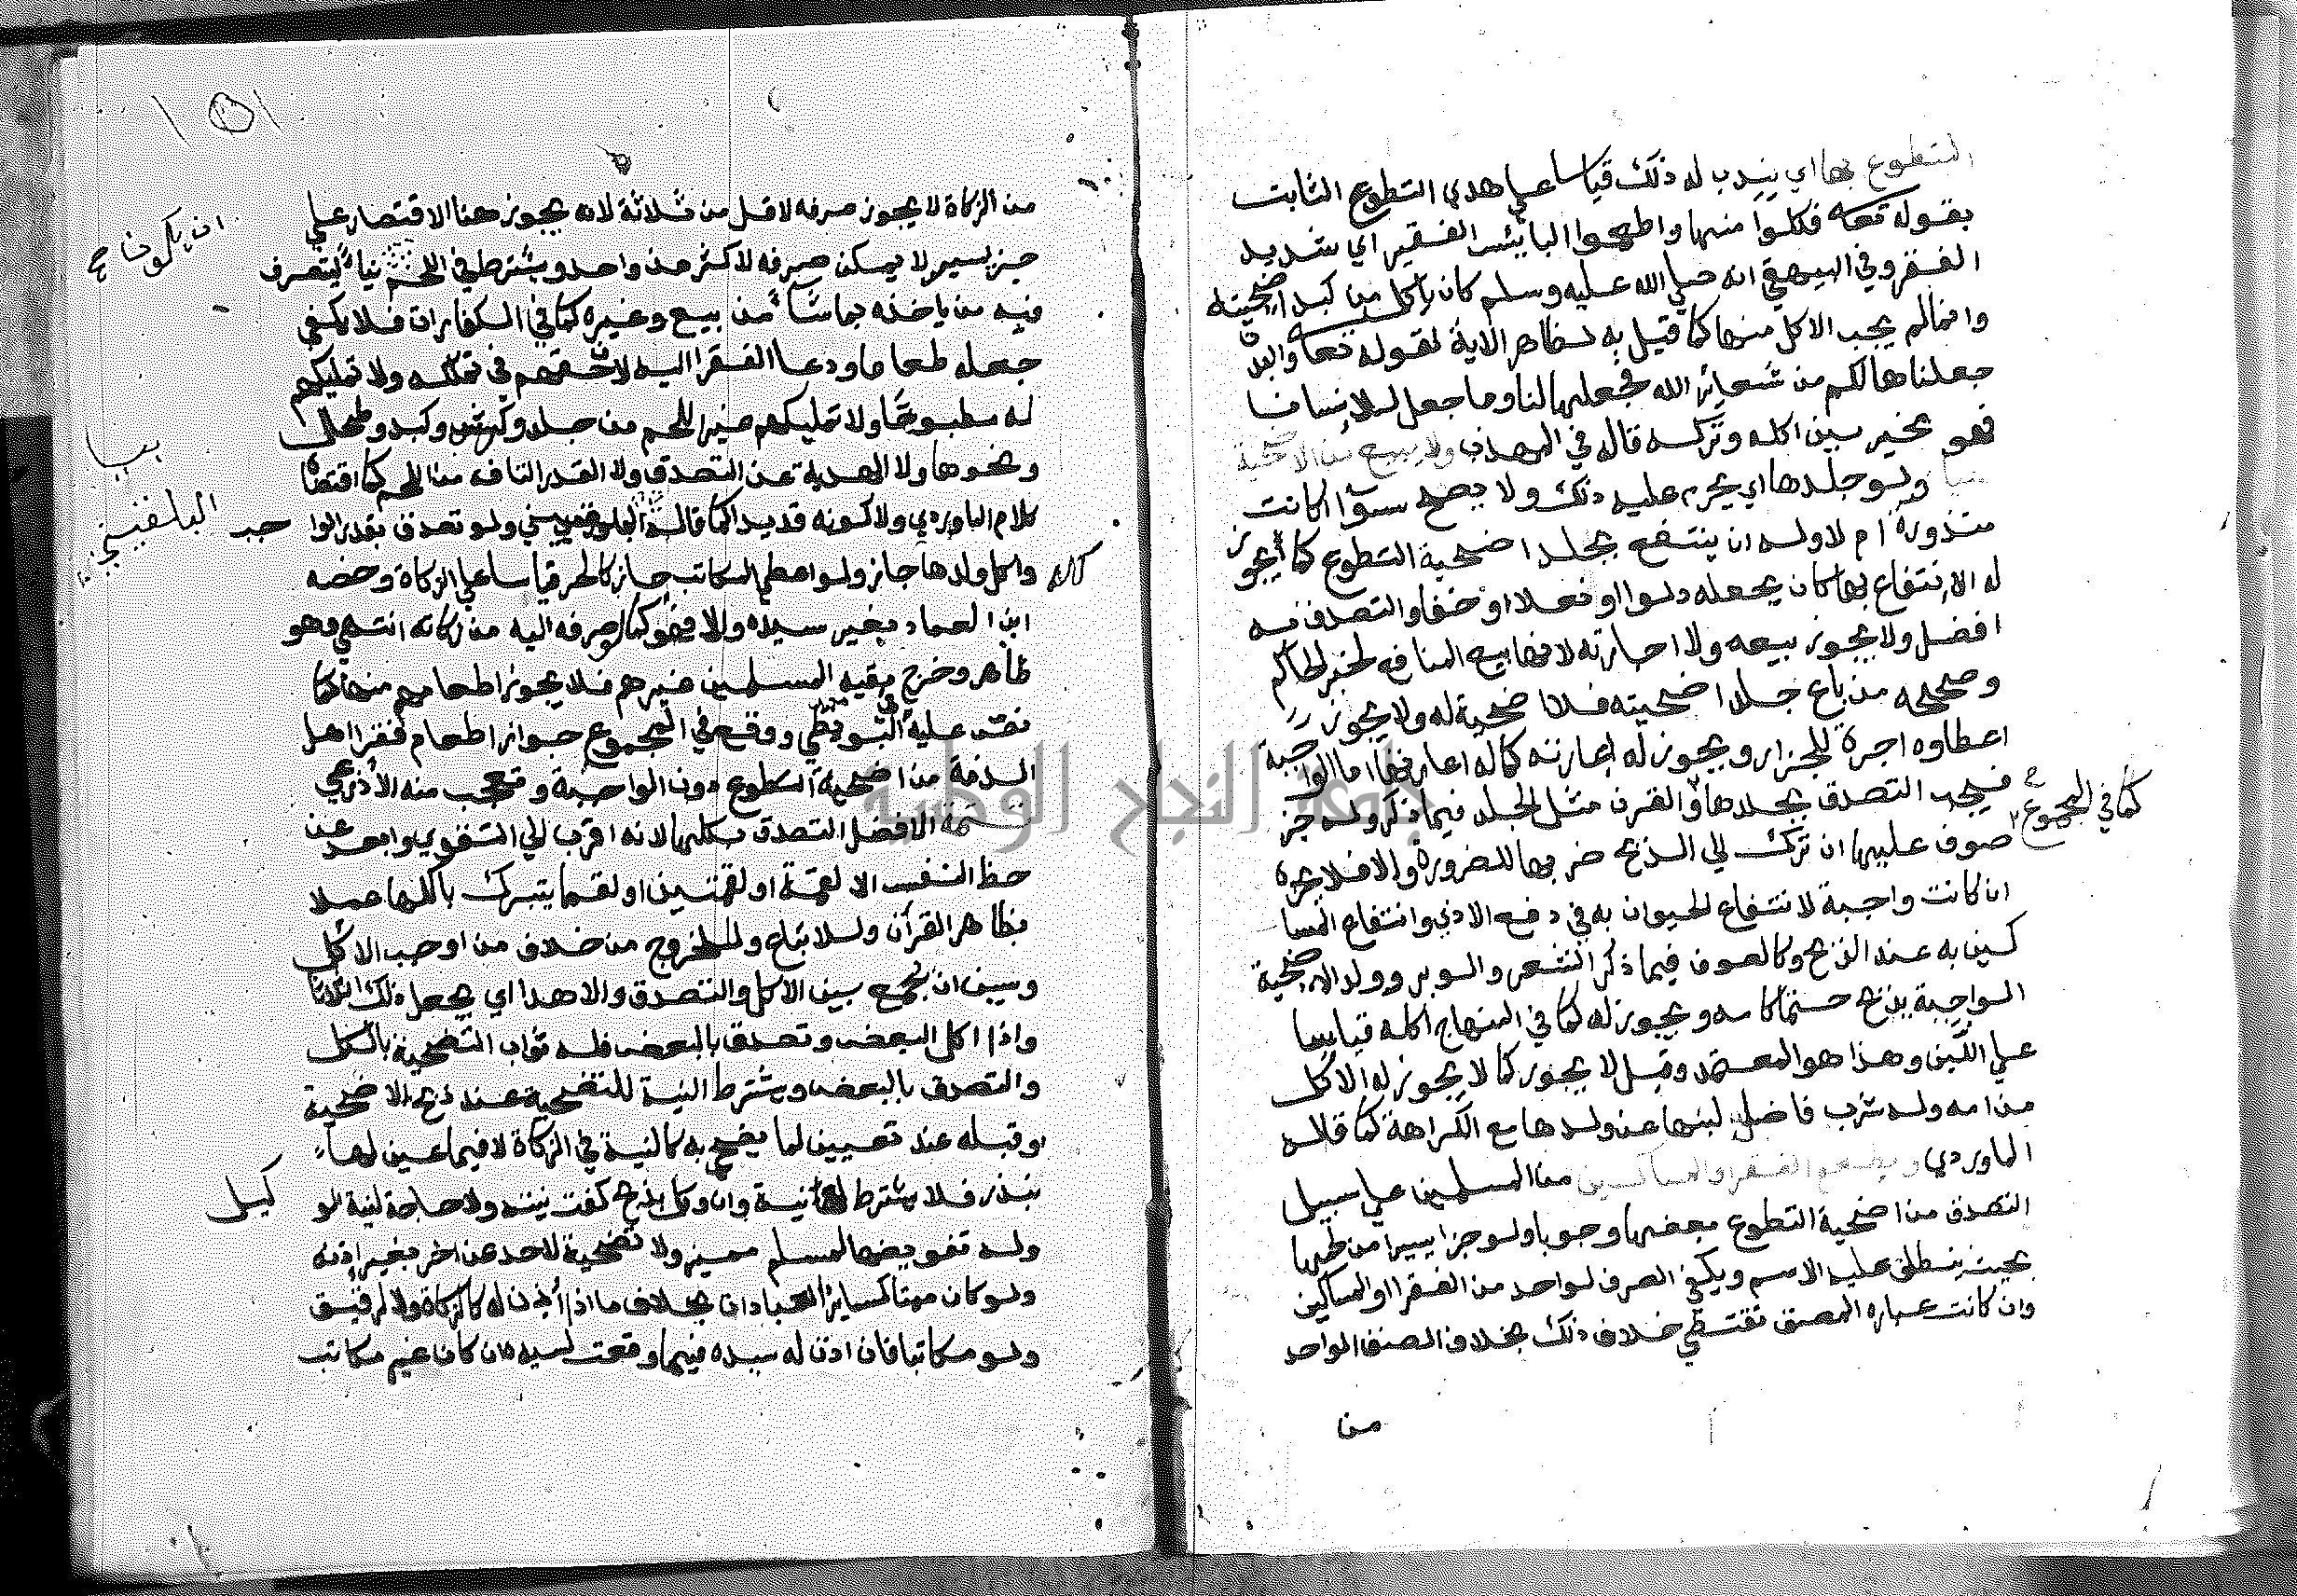 التطوع بها اي يندب له ذلك قياسا علي هدي التطوع الثابت
بقوله تعه فكلوا منها واطعموا البائس الفقير اي شديد
الفقر وفي البيهقي انه صلي الله عليه وسلم كان ياكل من كبد اضحيته
وانما لم يجب الاكل منها كما قيل به لظاهر الاية لقوله تعه والبدن
جعلناها لكم من شعائر الله فجعلها لنا وما جعل للانسان
فهو مخير بين اكله وتركه قاله في المهذب ولا يبيع من الاضحية
شيا ولو جلدها اي يحرم عليه ذلك ولا يصح سوآ اكانت
منذورة ام لا وله ان ينتفع بجلد اضحية التطوع كما يجوز
له الانتفاع بها كان يجعله دلوا او نعلا او خفا والتصدق به
افضل ولا يجوز بيعه ولا اجارته لانها بيع المنافع لخبر الحاكم
وصححه من باع جلد اضحيته فلا اضحية له ولا يجوز
اعطاوه اجرة للجزار ويجوز له اعارته كما له اعارتها اما الواجبة
فيجب التصدق بجلدها والقرن مثل الجلد فيما ذكر وله جز
كما في المجموع
صوف عليها ان ترك الي الذبح ضر بها للضرورة والا فلا يجزه
ان كانت واجبة لانتفاع الحيوان به في دفع الاذي وانتفاع المسا
كين به عند الذبح وكالصوف فيما ذكر الشعر والوبر وولد الاضحية
الواجبة يذبح حتما كامه ويجوز له كما في المنهاج اكله قياسا
علي اللبن وهذا هو المعتمد وقيل لا يجوز كما لا يجوز له الاكل
من امه وله شرب فاضل لبنها عن ولدها مع الكراهة كما قاله
الماوردي ويطعم الفقرا والمساكين من المسلمين علي سبيل
التصدق من اضحية التطوع بعضها وجوبا ولو جزا يسيرا من لحمها
بحيث ينطلق عليه الاسم ويكفي الصرف لواحد من الفقرا او المساكين
وان كانت عباره المصنف تقتضي خلاف ذلك بخلاف الصنف الواحد
من
من الزكاة لا يجوز صرفه لاقل من ثلاثة لانه يجوز هنا الاقتصار علي
جز يسير لا يمكن صرفه لاكثر من واحد ويشترط في اللحم نيا ليتصرف
ان يكون
فيه من ياخذه بما شآ من بيع وغيره كما في الكفارات فلا يكفي
جعله طعاما ودعا الفقرا اليه لان حقهم في تملكه ولا تمليكهم
له مطبوخا ولا تمليكهم غير اللحم من جلد وكرش وكبد وطحال
ونحوها ولا الهدية عن التصدق ولا القدر التافه من اللحم كما اقتضاه
كلام الماوردي ولا كونه قديدا كما قاله البلقيني ولو تصدق بقدر الوا
جب
البلقيني
واكل ولدها جاز ولو اعطي المكاتب جاز كالحر قياسا علي الزكاة وخصه
كله
ابن العماد بغير سيده والا فهو كما لو صرفه اليه من زكاته انتهي وهو
ظاهر وخرج بقيد المسلمين غيرهم فلا يجوز اطعامهم منها كما
نص عليه في البويطي ووقع في المجموع جواز اطعام فقرا اهل
الذمة من اضحية التطوع دون الواجبة وتعجب منه الأذرعي
تتمة الافضل التصدق بكلها لانه اقرب الي التقوي وابعد عن
حظ النفس الا لقمة او لقمتين او لقما يتبرك باكلها عملا
بظاهر القرآن وللاتباع وللخروج من خلاف من اوجب الاكل
وسن ان يجمع بين الاكل والتصدق والاهدا اي يجعل ذلك اثلاثا
واذا اكل البعض وتصدق بالبعض فله ثواب التضحية بالكل
والتصدق بالبعض ويشترط النية للتضحية عند ذبح الاضحية
وقبله عند تعيين لما يضحي به كالنية في الزكاة لا فيما عين لها
بنذر فلا يشترط لها نية وان وكل بذبح كفت نيته ولا حاجة لنية الو
كيل
وله تفويضها لمسلم مميز ولا تضحية لاحد عن اخر بغير اذنه
ولو كان ميتا كساير العبادات بخلاف ما اذا أذن له كالزكاة ولا لرقيق
ولو مكاتبا فان اذن له سيده فيها وقعت لسيده ان كان غير مكاتب
جامعة النجاح الوطنية